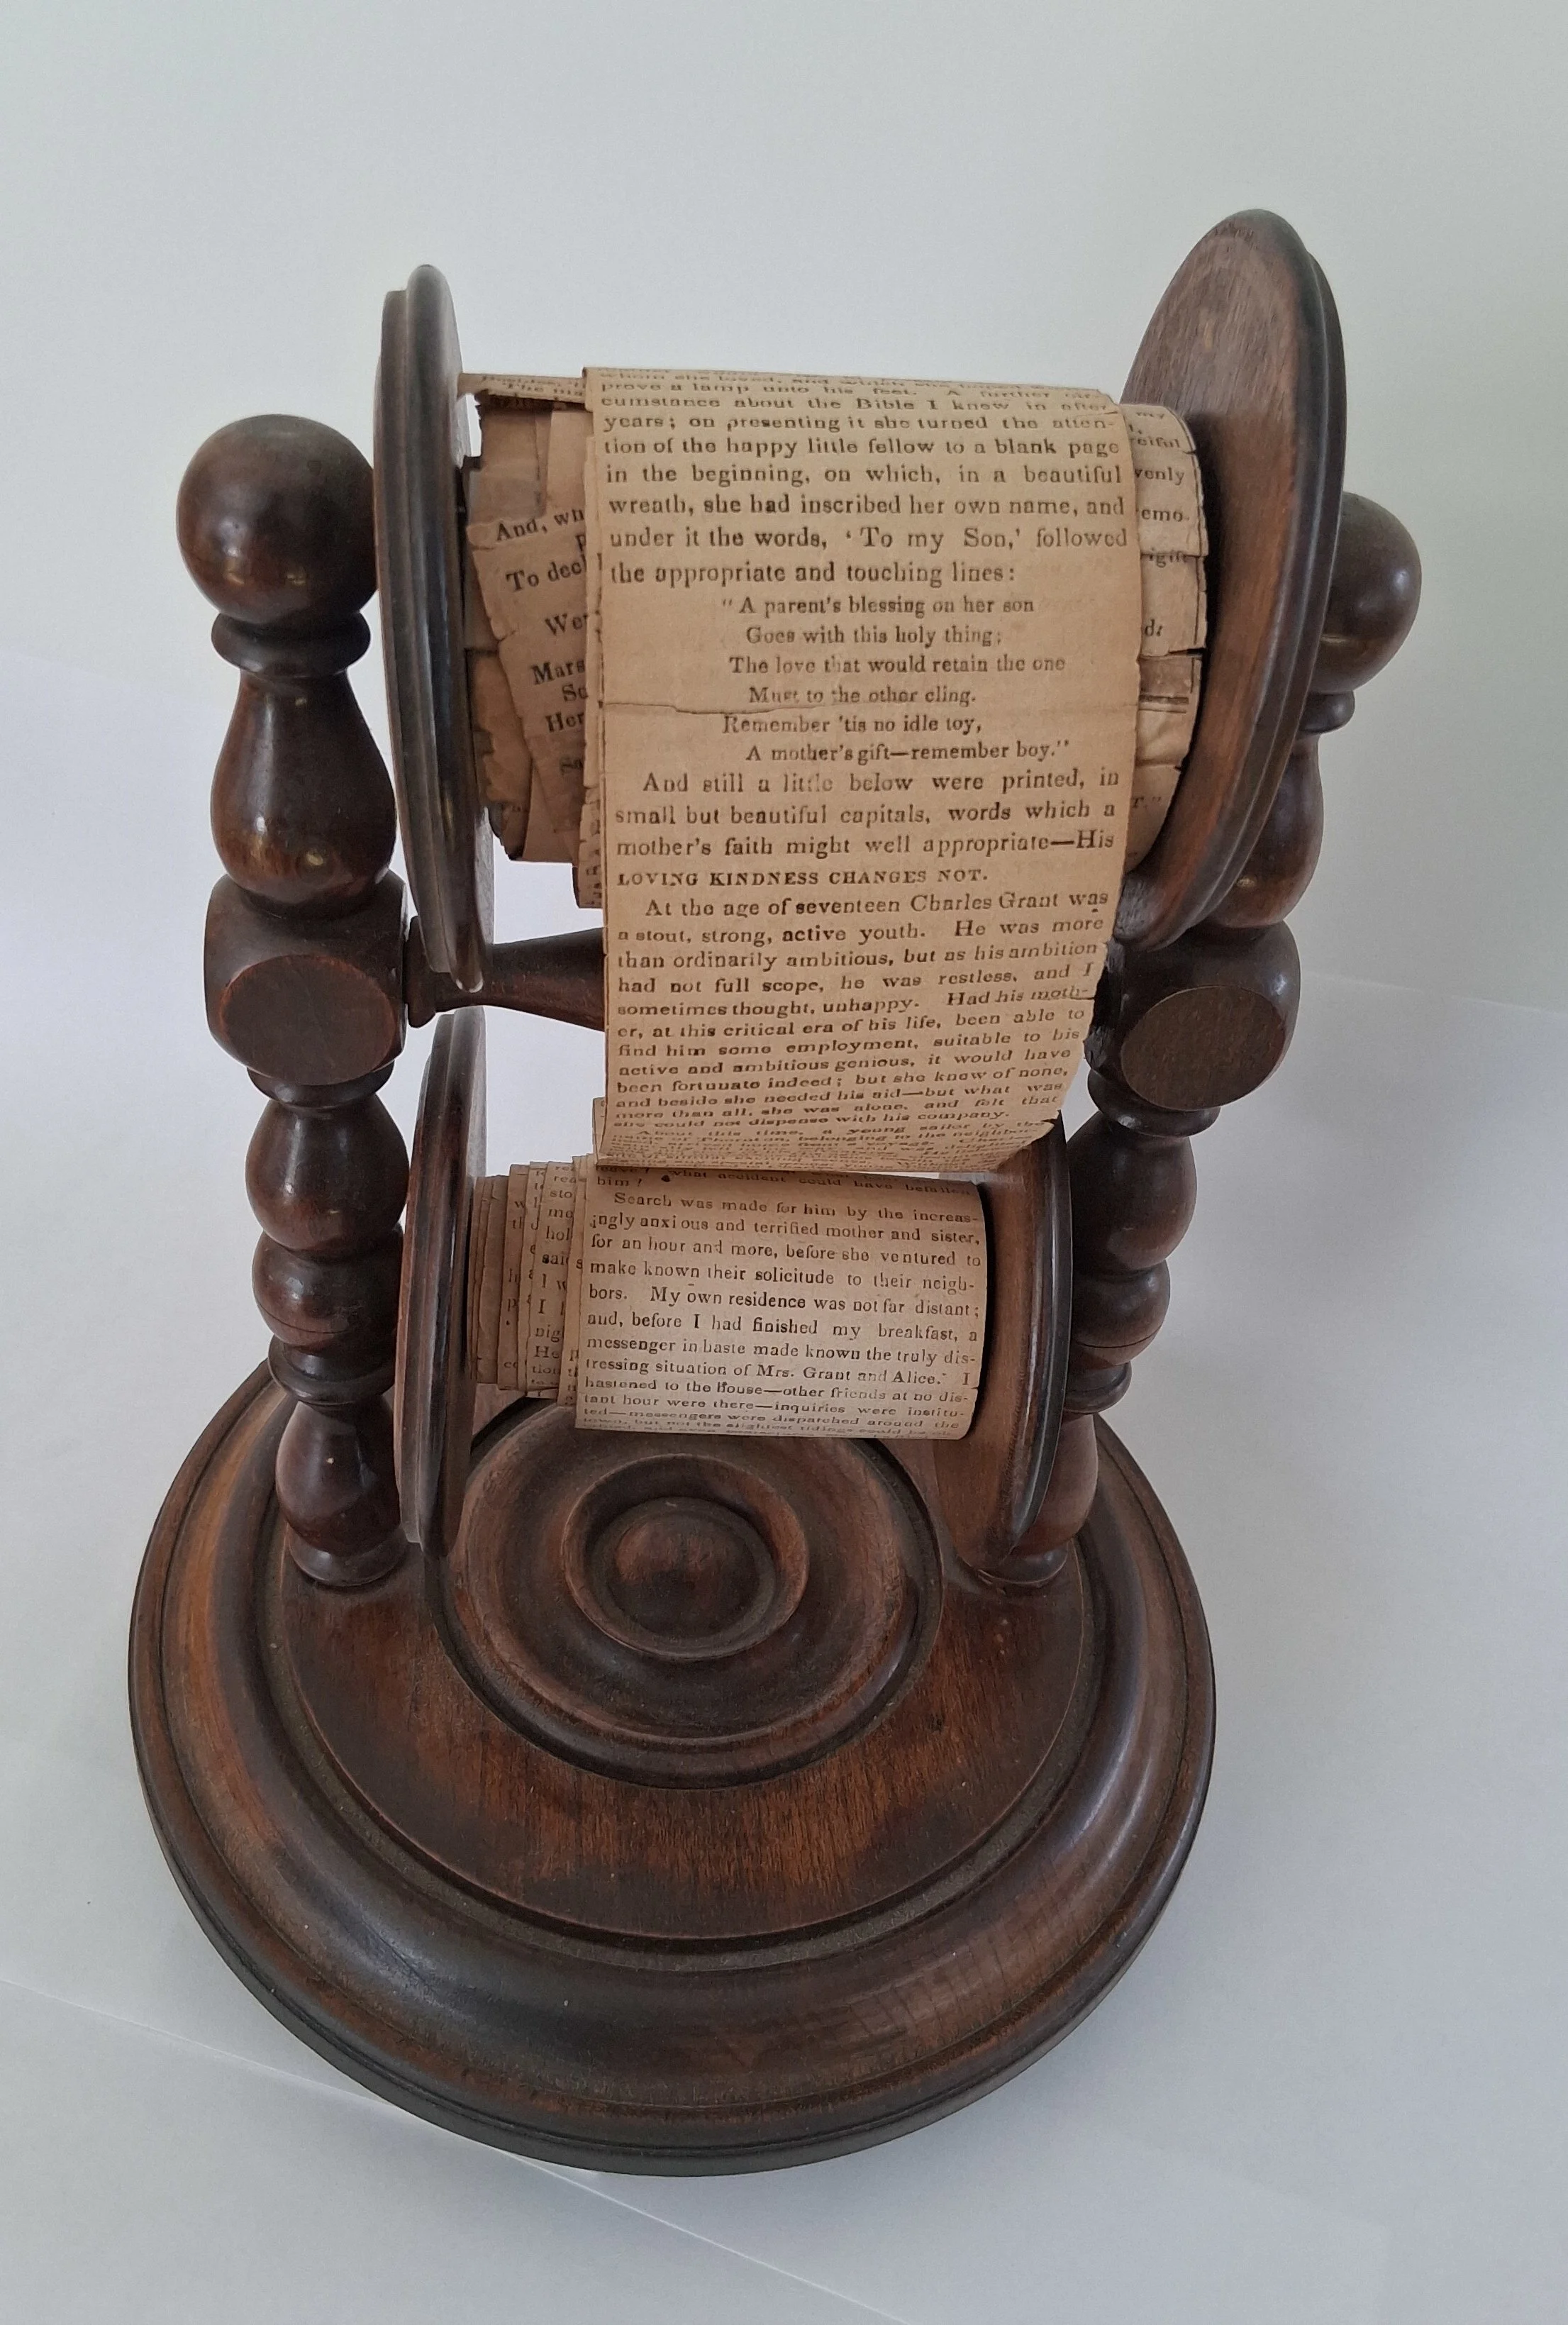 whom she loved, and which she
prove a lamp unto his feet. A further cir-
cumstance about the Bible I knew in after
years; on presenting it she turned the atten-
tion of the happy little fellow to a blank page
in the beginning, on which, in a beautiful
wreath, she had inscribed her own name, and
under it the words, ‘To my Son,’ followed
the appropriate and touching lines:
"A parent's blessing on her son
Goes with this holy thing;
The love that would retain the one
Must to the other cling.
Remember 'tis no idle toy,
A mother's gift—remember boy."
And still a little below were printed, in
small but beautiful capitals, words which a
mother's faith might well appropriate—His
LOVING KINDNESS CHANGES NOT.
At the age of seventeen Charles Grant was
a stout, strong, active youth. He was more
than ordinarily ambitious, but as his ambition
had not full scope, he was restless, and I
sometimes thought, unhappy. Had his moth-
er, at this critical era of his life, been able to
find him some employment, suitable to his
active and ambitious genious, it would have
been fortunate indeed; but she knew of none,
and beside she needed his aid—but what was
more than all, she was alone, and felt that
she could not dispense with his company.
About this time, a young sailor by the
name of Thornton, belonging to the neighbor-
And, wh
To decl
Wer
Mars
So
Her
my
eiful
venly
emo-
what accident could have befallen
him?
Search was made for him by the increas-
ingly anxious and terrified mother and sister,
for an hour and more, before she ventured to
make known their solicitude to their neigh-
bors. My own residence was not far distant;
and, before I had finished my breakfast, a
messenger in haste made known the truly dis-
tressing situation of Mrs. Grant and Alice. I
hastened to the house—other friends at no dis-
tant hour were there—inquiries were institu-
ted—messengers were dispatched around the
town, but not the slightest tidings could be